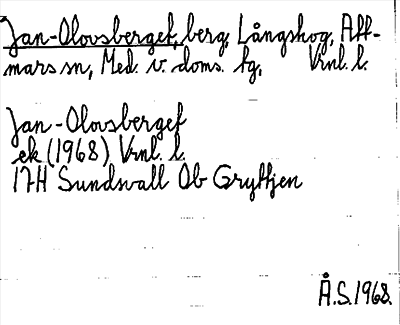 Jan-Olovsberget, berg, Långskog, Att-
mars sn, Med. v. doms. tg, Vrnl. l.
Jan-Olovsberget
ek (1968) Vrnl. l.
17H Sundsvall Ob Gryttjen
Å.S. 1968.